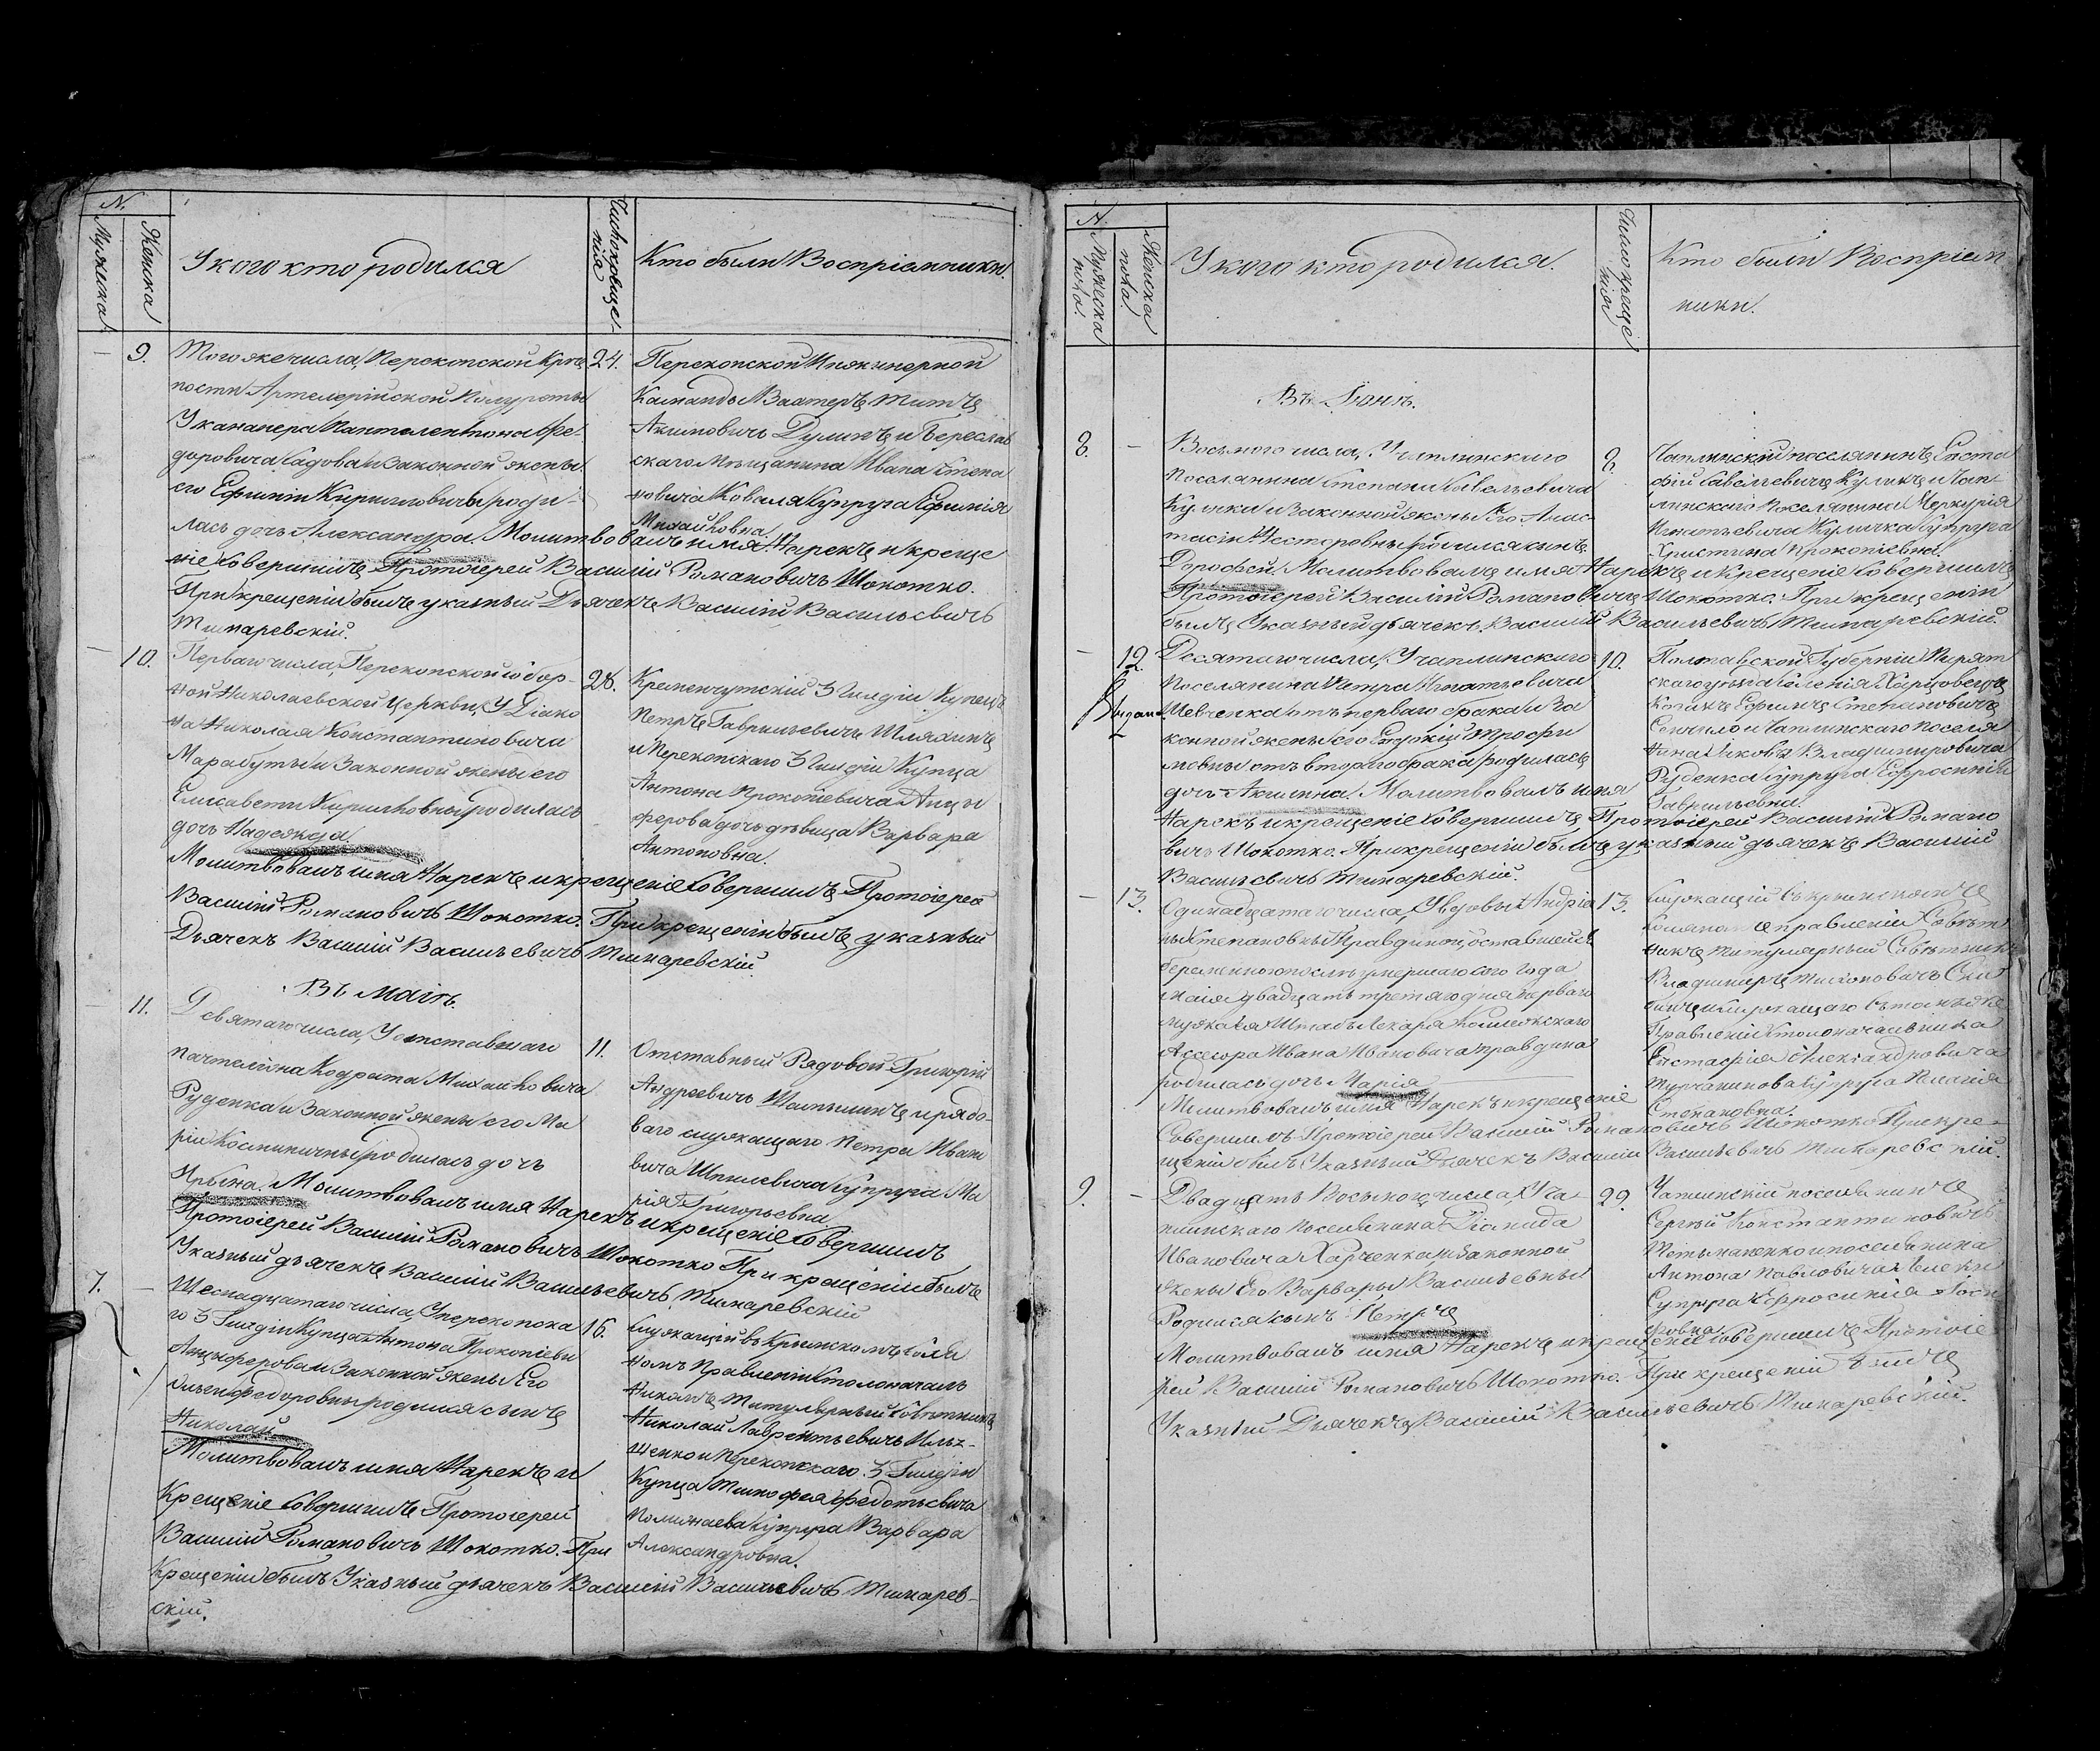 N.
Мужеска
Женска
У кого кто родился
Число креще-
нія
Кто были Воспріемники.
9.
Того же числа, Перекопской Крѣ
пости Артелерійской Полуроты
У канапера Пантелеимона Фе-
доровича Садова и Законной жены
его Ефиміи Кирилловны роди-
лась дочь Александра. Молитвовалъ имя Нарекъ и креще
ніе Совершилъ Протоіерей Василій Романовичъ Шокотко.
При крещеніи былъ указный Дьячекъ Василій Васильевичъ
Тимаревскій.
24.
Перекопской Инжинерной
Команды Вахтеръ Титъ
Акимовичъ Думинъ и Береслав
скаго Мѣщанина Ивана Степа
новича Коваля Супруга Ефимія
Михайловна.
10.
Перваго числа, Перекопской Собор-
ной Николаевской Церкви, У Діако
на Николая Константиновича
Марабуты и Законной жены его
Елисаветы Кириловны родилась
дочь Надежда
Молитвовалъ имя Нарекъ и крещеніе Совершилъ Протоіерей
Василій Романовичъ Шокотко. При крещеніи былъ указный
Дьячекъ Василій Васильевичъ Тимаревскій.
28.
Кременчугскій 3 Гилдіи Купецъ
Петръ Гавриловичъ Шляхинъ
и Перекопскаго 3 Гилдіи Купца
Антона Прокопіевича Анцы
ферова дочь дѣвица Варвара
Антоновна.
Въ Маіѣ.
11.
Девятаго числа, У отставнаго
почтеліона Кодрата Михайловича
Руденка и Законной жены его Ма
ріи Косминичны родилась дочь
Ирына. Молитвовалъ имя Нарекъ и крещеніе Совершилъ
Протоіерей Василій Романовичъ Шокотко При крещеніи былъ
Указный дьячекъ Василій Васильевичъ Тимаревскій
11.
Отставный Рядовой Григорій
Андреевичъ и рядо-
ваго служащаго Петра Ивано
вича Шпилевича Супруга Ма
рія Григорьевна
7.
Шеснадцатаго числа, У перекопска
го 3 Гилдіи Купца Антона Прокопіеви
Анцыферова и Законной жены Его
Ольги Федоровны родился сынъ
Николай
Молитвовалъ имя Нарекъ и
Крещеніе Совершилъ Протоіерей
Василій Романовичъ Шокотко. При
Крещеніи былъ Указный дьячекъ Василій Васильевичъ Тимарев-
скій.
16.
Служащій въ Крымскомъ Соля
номъ Правленіи Столоначаль
никомъ Титулярный Совѣтникъ
Николай Лаврентьевичъ
и Перекопскаго 3 Гилдіи
Купца Тимофея Федотьевича
Супруга Варвара
Александровна.
N.
Мужеска
пола.
Женска
пола.
У кого кто родился.
Число креще
нія
Кто были Воспріем
ники.
Въ Іюнѣ.
8.
Восьмого числа, Чаплинскаго
Поселянина Степана Савельевича
Кулика и Законной жены Его Анас
тасіи Несторовны родился сынъ
Дорофей. Молитвовалъ имя Нарекъ и Крещеніе Совершилъ
Протоіерей Василій Романовичъ Шокотко. При крещеніи
былъ Указный дьячекъ Василій Васильевичъ Тимаревскій.
8.
Чаплинскій поселянинъ Евста
фій Савельевичъ Куликъ и Чап-
линскаго Поселянина Меркурія
Игнатьевича Кулика Супруга
Христина Прокопіевна.
12.
Десятаго числа, У чаплинскаго
Поселянина Петра Игнатьевича
Шевченка отъ перваго брака и За
конной жены его Трофи
мовны отъ втораго брака родилась
дочь Акилина. Молитвовалъ имя
Нарекъ и крещеніе Совершилъ Протоіерей Василій Романо
вичъ Шокотко. При крещеніи былъ указный дьячекъ Василій
Васильевичъ Тимаревскій.
10.
Полтавской Губерніи Пирят
скаго уѣзда Селенія
Ефимъ Степановичъ
и Чаплинскаго Поселя
нина Якова Владимировича
Руденка Супруга Ефросинія
Гавриловна.
13.
Одинадцатаго числа, У вдовы Андріа
ны Степановны Правдиной, оставшейся
беременною послѣ умершаго сого года
маія двадцать третяго дня перваго
мужа ея Штабъ Лекаря Коллежскаго
Асесора Ивана Ивановича Правдина
родилась дочь Марія
Молитвовалъ имя Нарекъ и крещеніе
Совершилъ Протоіерей Василій Романовичъ Шокотко При кре-
щеніи былъ Указный Дьячекъ Василій Васильевичъ Тимаревскій.
13.
Служащій въ крымскомъ
Соляномъ правленіи Совѣт
никъ Титулярный Совѣтникъ
Владимиръ Тихоновичъ
и служащаго въ томъ же
Правленіи Столоначальника
Евстафія Александровича
Турчанинова Супруга Пелагія
Степановна.
9.
Двадцать Восьмого числа, У Ча-
плинскаго поселянина Діомида
Ивановича Харченка и Законной
жены Его Варвары Васильевны
Родился сынъ Петръ
Молитвовалъ имя Нарекъ и крещеніе Совершилъ Протоіе
рей Василій Романовичъ Шокотко. При крещеніи былъ
Указный Дьячекъ Василій Васильевичъ Тимаревскій.
29.
Чаплинскій поселянинъ
Сергѣй Константиновичъ
и поселянина
Антона Павловича
Супруга Ефросинія Іоси
фовна.